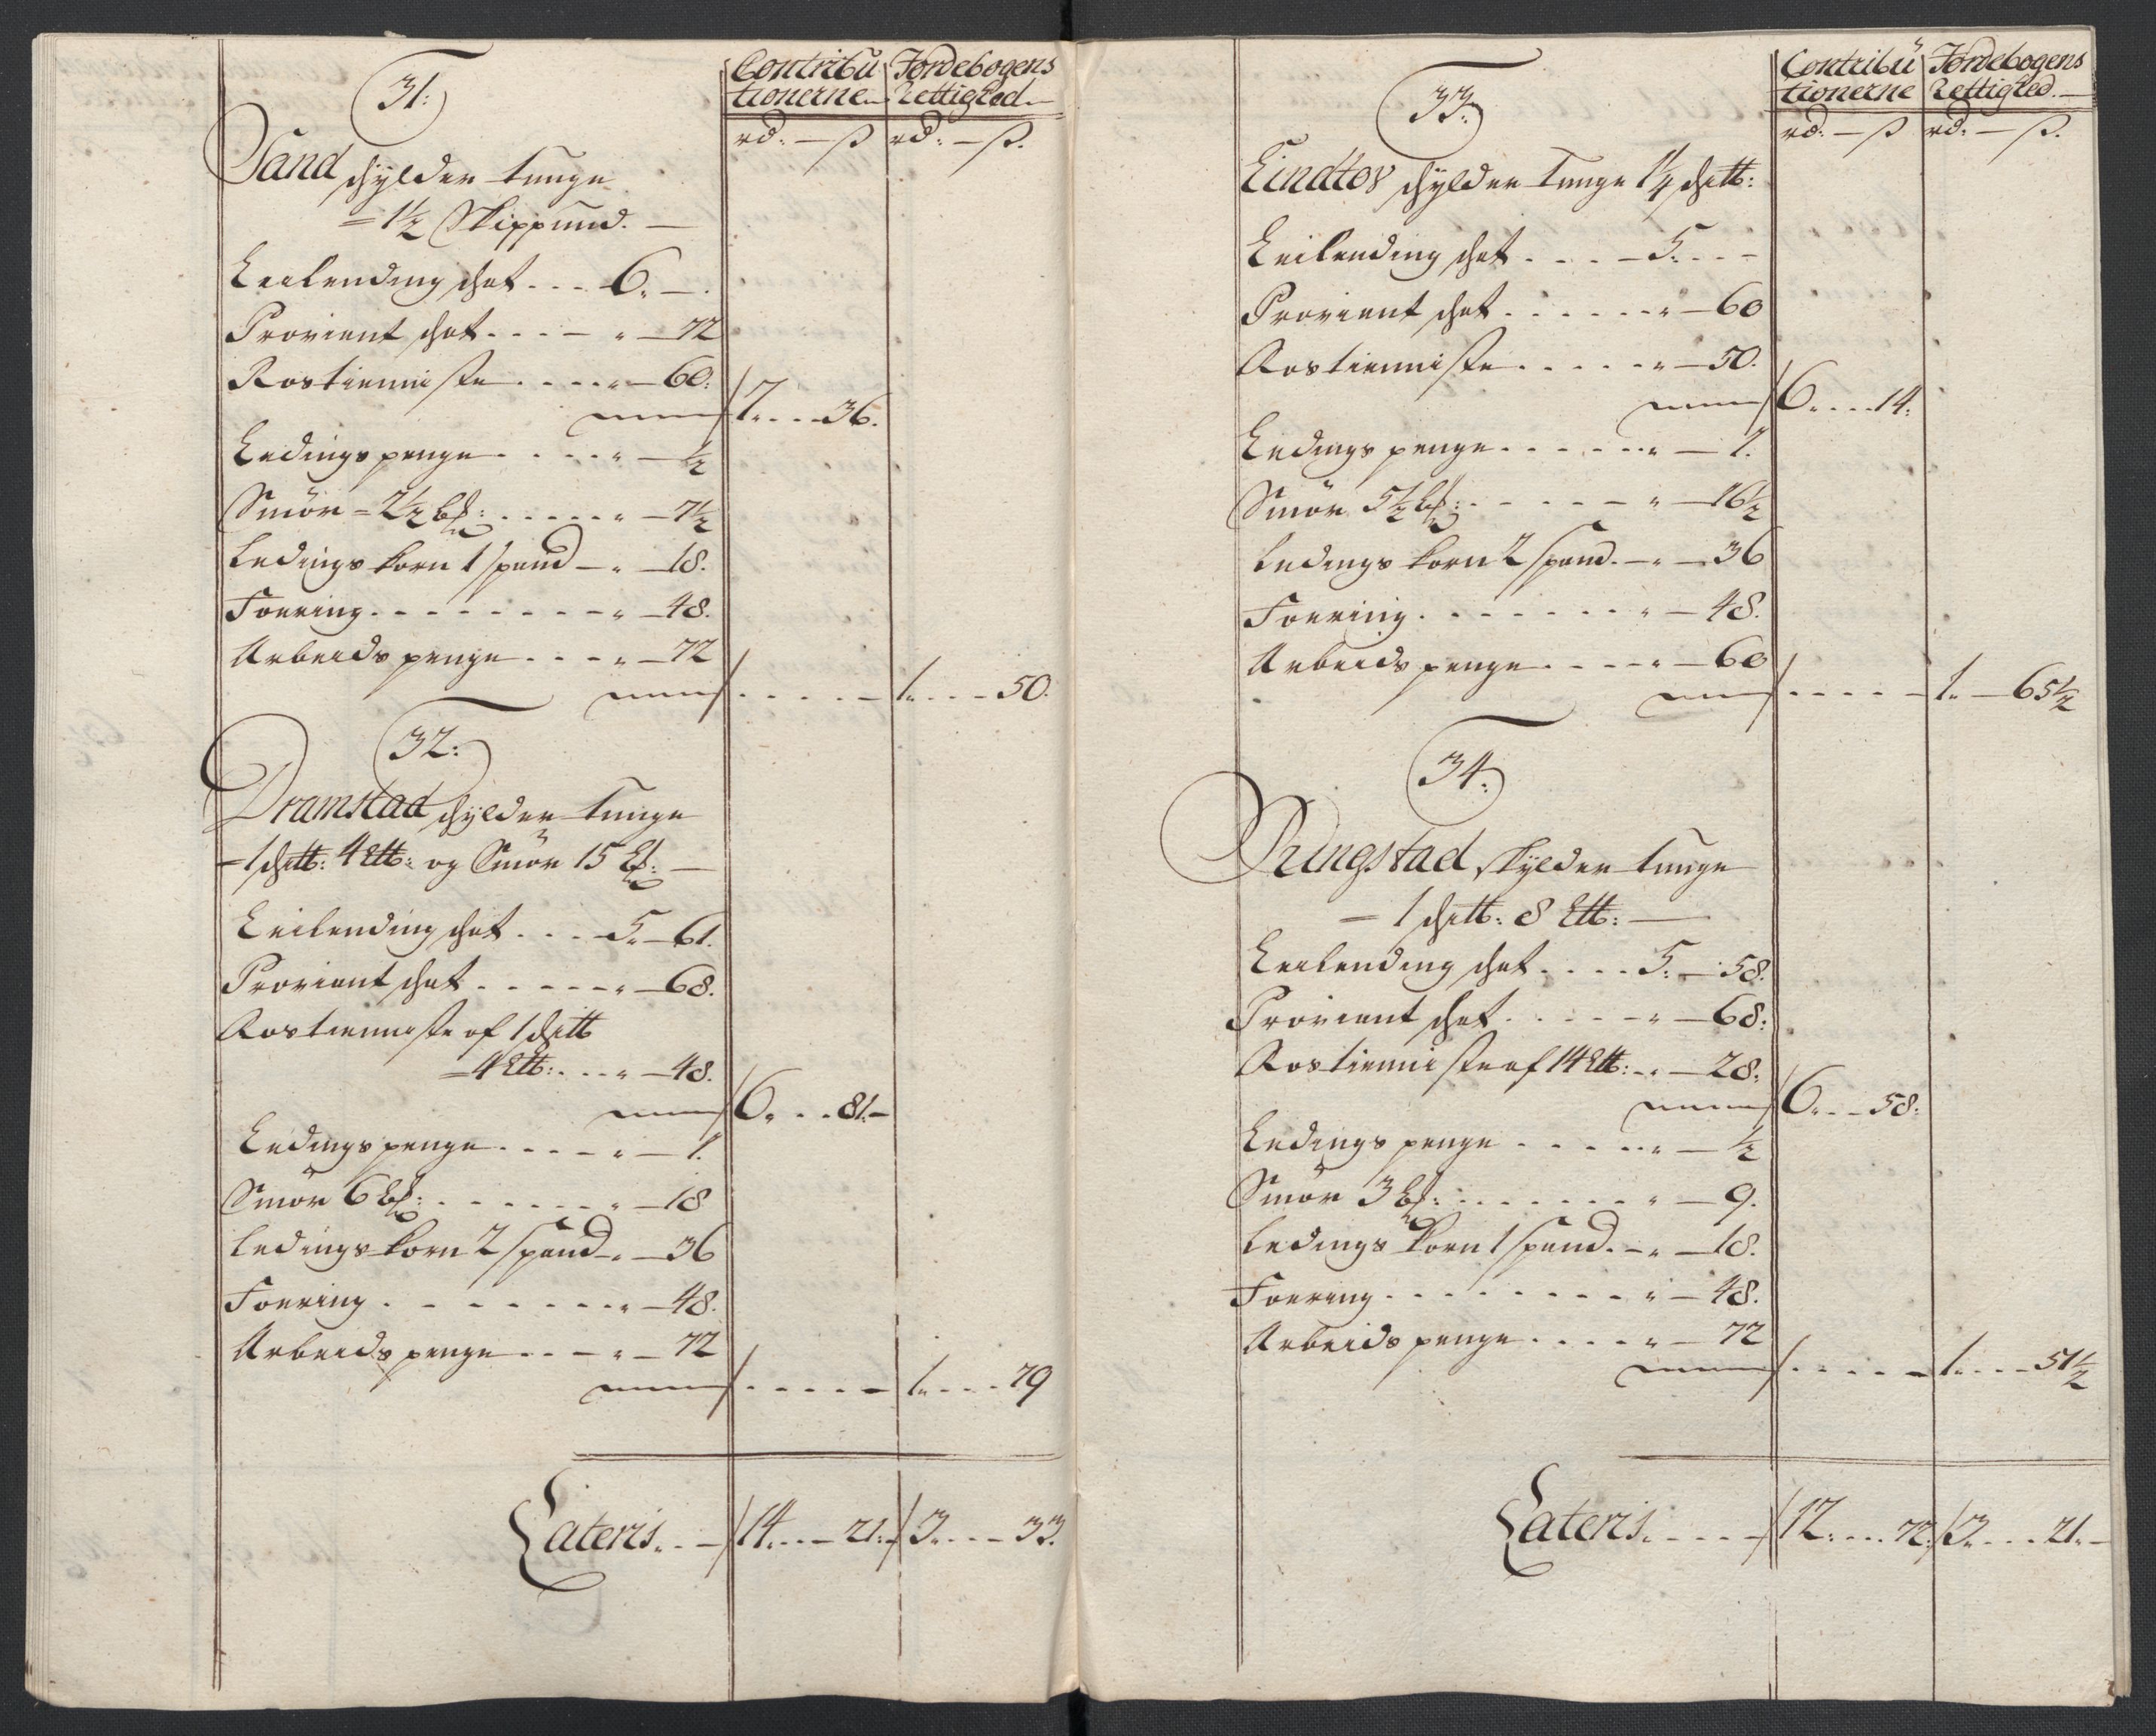 31:
Contribu
tionerne
Jordebogens
Rettighed.
rd: — ß
rd: — ß.
Sand schylder tunge
= 1½ Skippund. —
Leilending schat . . . 6. —.
Proviant schat . . . . — " — 72
Rostienniste . . . . " — 60:
7. . . . 36.
Ledings penge . . . . " — ½
Smör = 2½ : . . . . . " — 7½
Ledings korn 1 spand — " — 18.
Foering . . . . . . . . " — 48.
Arbeids penge . . . . " — 72
. . . . . — 1. . . . 50.
32:
Dramstad schylder tunge
= 1 sch℔: 4 L℔: og Smör 15 : —
Leilending schat . . . 5. — 61.
Proviant schat . . . . . " — 68.
Rostienneste af 1 sch℔
= 4 L℔: . . . " — 48.
6. . . . 81. —
Ledings penge . . . . . " — 1.
Smör 6 : . . . . . . . " — 18
Ledings korn 2 spand . " — 36
Foering . . . . . . . . " — 48.
Arbeids penge . . . — " — 72
. . . . . — 1. . . . 79
Lateris. . . — 14. . . — 21: 3. . . — 33.
33:
Contribu
tionerne
Jordebogens
Rettighed. —
rd: — ß
rd: — ß.
Lindtos schylder Tunge 1¼ sch℔:
Leilending schat . . . . — 5. . . —
Proviant schat . . . . . . . " — 60
Rostienniste . . . . . . " — 50.
6. . . . 14:
Ledings penge . . . . . . " — 1.
Smör 5½ : . . . . . — " — 16½
Ledings korn 2 spand. — " — 36
Foering . . . . . . . . " — 48.
Arbeids penge . . . . . " — 60
. . . . . — 1. — 65½
34:
Ringstad skylder tunge
= 1 sch℔: 8 L℔: —
Leilending schat . . . . 5. — 58.
Proviant schat . . . . . — " — 68:
Rostienniste af 14 L℔: . " — 28:
6. . . — 58:
Ledings penge . . . . . . " — ½
Smör 3 : . . . . . . . " — 9.
Ledings korn 1 spand. — " — 18.
Foering . . . . . . . . . " — 48.
Arbeids penge . . . . . " — 72
. . . . . — 1. . . . 51½
Lateris. . . . . — 12: . . . 72: 3. . . . 21. —